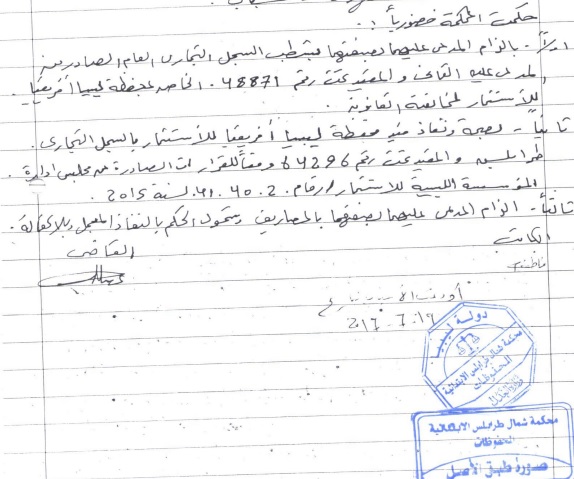 حكمت المحكمة حضورياً :
اولاً - بالزام المدعى عليهما بصفتهما بشطب السجل التجاري العام الصادر من
المدعى عليه الثاني و المقيد تحت رقم 48871 . الخاص بمحفظة ليبيا أفريقيا
للأستثمار لمخالفته القانون .
ثانياً - بصحة ونفاذ قيد محفظة ليبيا أفريقيا للأستثمار بالسجل التجاري .
طرابلس و المقيد تحت رقم 64296 وفقاً للقرارات الصادرة عن مجلس ادارة
المؤسسة الليبية للاستثمار ارقام 2 . 40 . 41 لسنة 2015 .
ثالثاً - الزام المدعى عليهما بصفتهما بالمصاريف وشمول الحكم بالنفاذ المعجل وبلا كفالة .
الكاتب القاضي
2017.7.19
دولة ليبيا
محكمة شمال طرابلس الابتدائية
المحفوظات
محكمة شمال طرابلس الابتدائية
المحفوظات
صورة طبق الأصل